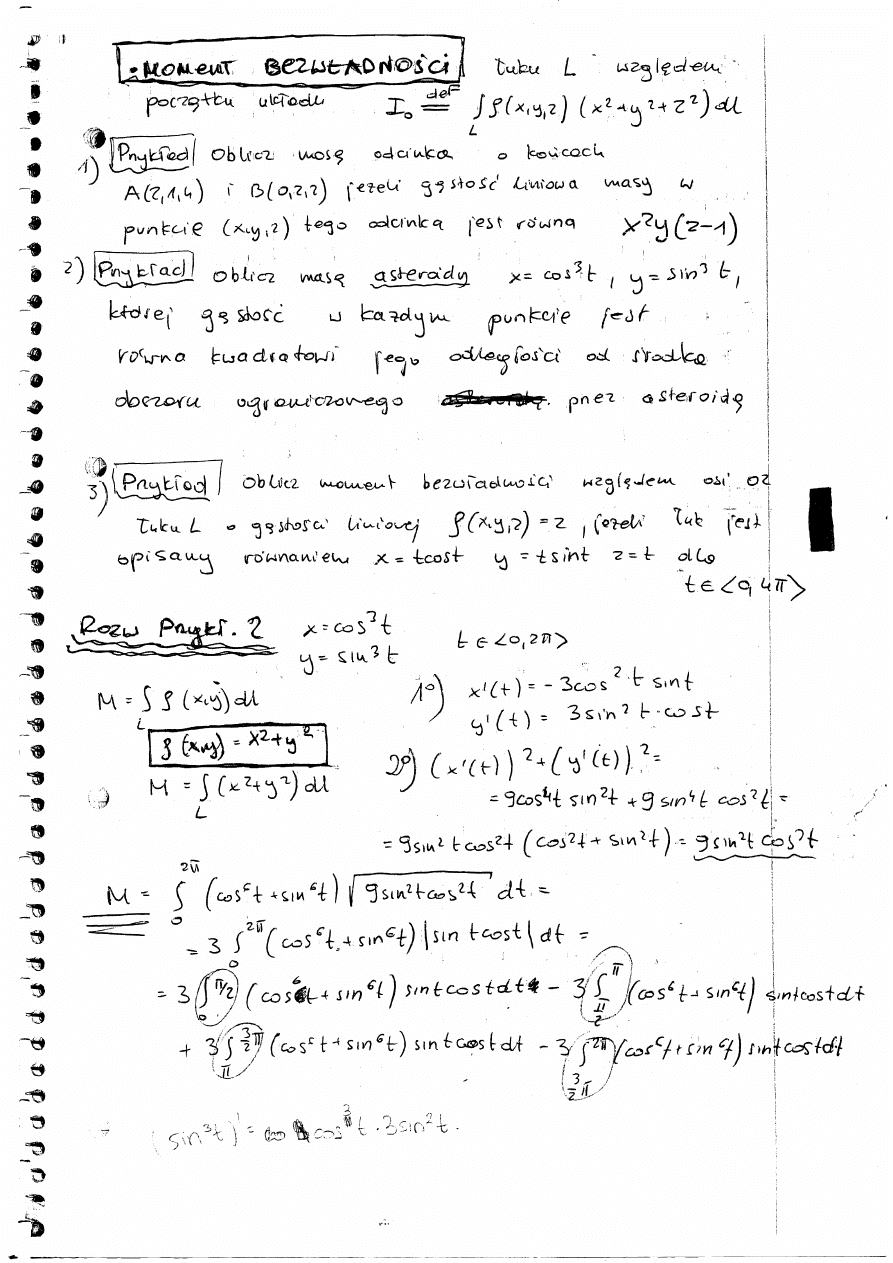 • MOMENT BEZWŁADNOŚCI łuku L względem
początku układu I₀ =def ∫_L ρ(x,y,z) (x²+y²+z²) dl
1) Przykład Oblicz masę odcinka o końcach
A(2,1,4) i B(0,2,2) jeżeli gęstość liniowa masy w
punkcie (x,y,z) tego odcinka jest równa x²y(z-1)
2) Przykład Oblicz masę asteroidy x = cos³t, y = sin³t,
której gęstość w każdym punkcie jest
równa kwadratowi jego odległości od środka
obszaru ograniczonego przez asteroidę
3) Przykład Oblicz moment bezwładności względem osi OZ
łuku L o gęstości liniowej ρ(x,y,z) = z, jeżeli łuk jest
opisany równaniem x = tcost y = tsint z = t dla
t ∈ <0,4π>
Rozw Przykł. 2 x = cos³t
y = sin³t t ∈ <0,2π>
M = ∫_L ρ(x,y) dl
ρ(x,y) = x²+y²
M = ∫_L (x²+y²) dl
1°) x'(t) = -3cos²t sint
y'(t) = 3sin²t·cost
2°) (x'(t))²+(y'(t))² =
= 9cos⁴t sin²t + 9sin⁴t cos²t =
= 9sin²t cos²t (cos²t + sin²t) = 9sin²t cos²t
M = ∫₀^2π (cos⁶t + sin⁶t) √(9sin²t cos²t) dt =
= 3 ∫₀^2π (cos⁶t + sin⁶t) |sin t cos t| dt =
= 3 ∫₀^π/2 (cos⁶t + sin⁶t) sint cost dt - 3 ∫_π/2^π (cos⁶t + sin⁶t) sint cost dt
+ 3 ∫_π^3/2π (cos⁶t + sin⁶t) sint cost dt - 3 ∫_3/2π^2π (cos⁶t + sin⁶t) sint cost dt
(sin³t)' = cos³t · 3sin²t.